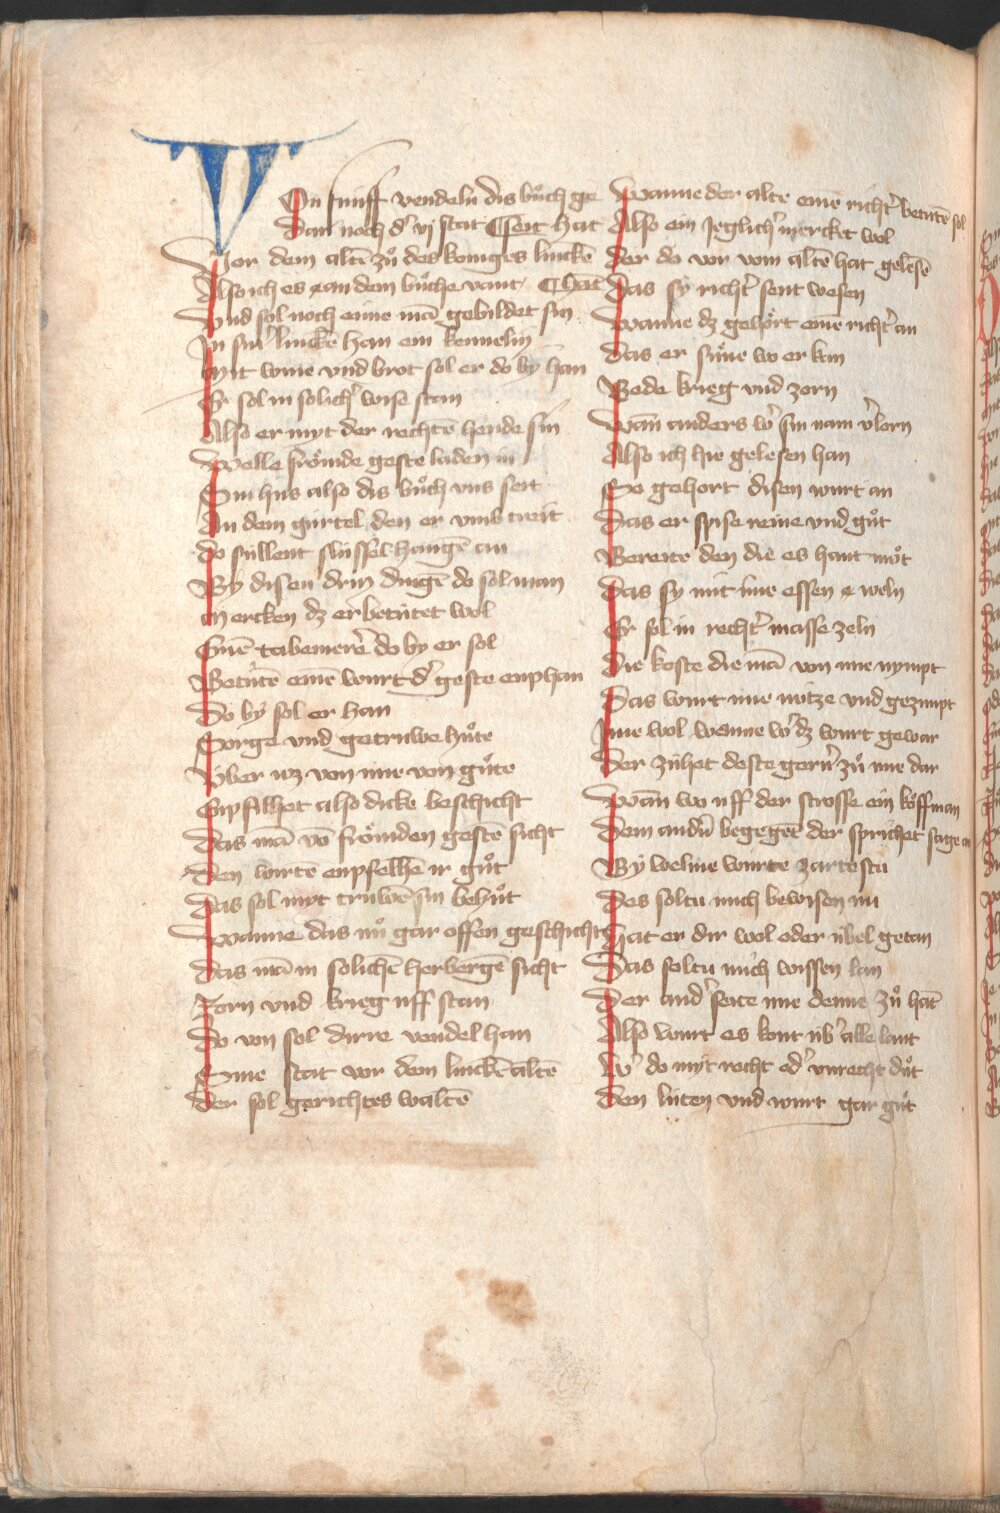 VOn fúnff vendeln dis bůch ge
Dar noch dˀ vj stat ¶ seit hat
Vor dem altē zů des koniges lincken
Also ich es an dem bůche vant ¶ hāt
Vnd sol noch eime mā gebildet sin
In sinˀ linckē han ein kennelin
Myt wine vnd brot sol er do by han
Er sol in solichˀ wise stan
Also er myt der rechtē hende sin
Welle frömde geste laden in
Sin hus also dis bůch vns seit
An dem gúrtel den er vmb treit
do súllent slússel hangē an
By disen drin dingē do sol man
Mercken dz er betútet wol
Einē tabernerˀ do by er sol
Betútē einē wurt dˀ geste enphan
Do by sol er han
Sorge vnd getruwe hůte
Vber wz von ime von gůte
Enpfilhet also dicke beschicht
Das mā vō frömden gestē sicht
Den wirtē enpfelhē ir gůt
Das sol myt truwē sin behůt
Wanne das nů gar offen geschicht
Das mā in solichē herbergē sicht
Zorn vnd krieg uff stan
Do von sol dirre vendel han
Sine stat vor dem linckē altē
Der sol gerichtes waltē
Wanne der alte einē richtˀ betutē sol
Also ein Jeglichˀ mercket wol
Der do vor vom altē hat gelesē
Das sy richtˀ sent wesen
Wanne dz gehört eine richtˀ an
Das er súne wo er kan
Bede krieg vnd zorn
Wān anders wˀ sin nam vˀlorn
Also ich hie gelesen han
So gehort disen wurt an
Das er spise reine vnd gůt
Bereite den die es hant můt
Das sy mit ime essen weln
Er sol in rechtˀ masse zeln
Die koste die mā von ime nympt
Das wurt ime nútze vnd gezimpt
Ime wol wenne wˀdz wurt gewar
Der zúhet deste gernˀ zů ime dar
Wān wo uff der strosse ein köffman
Dem andˀn begegēt der sprichet sage an
By welme wurte zartestu
Des soltu mich bewisen nu
Hat er dir wol oder úbel getan
Das soltu mich wissen lan
Der andˀ seite ime denne zů hāt
Also wurt es kont úbˀ alle lant
Wˀ do myt recht odˀ vnrecht důt
Den lúten vnd wurt gar gůt